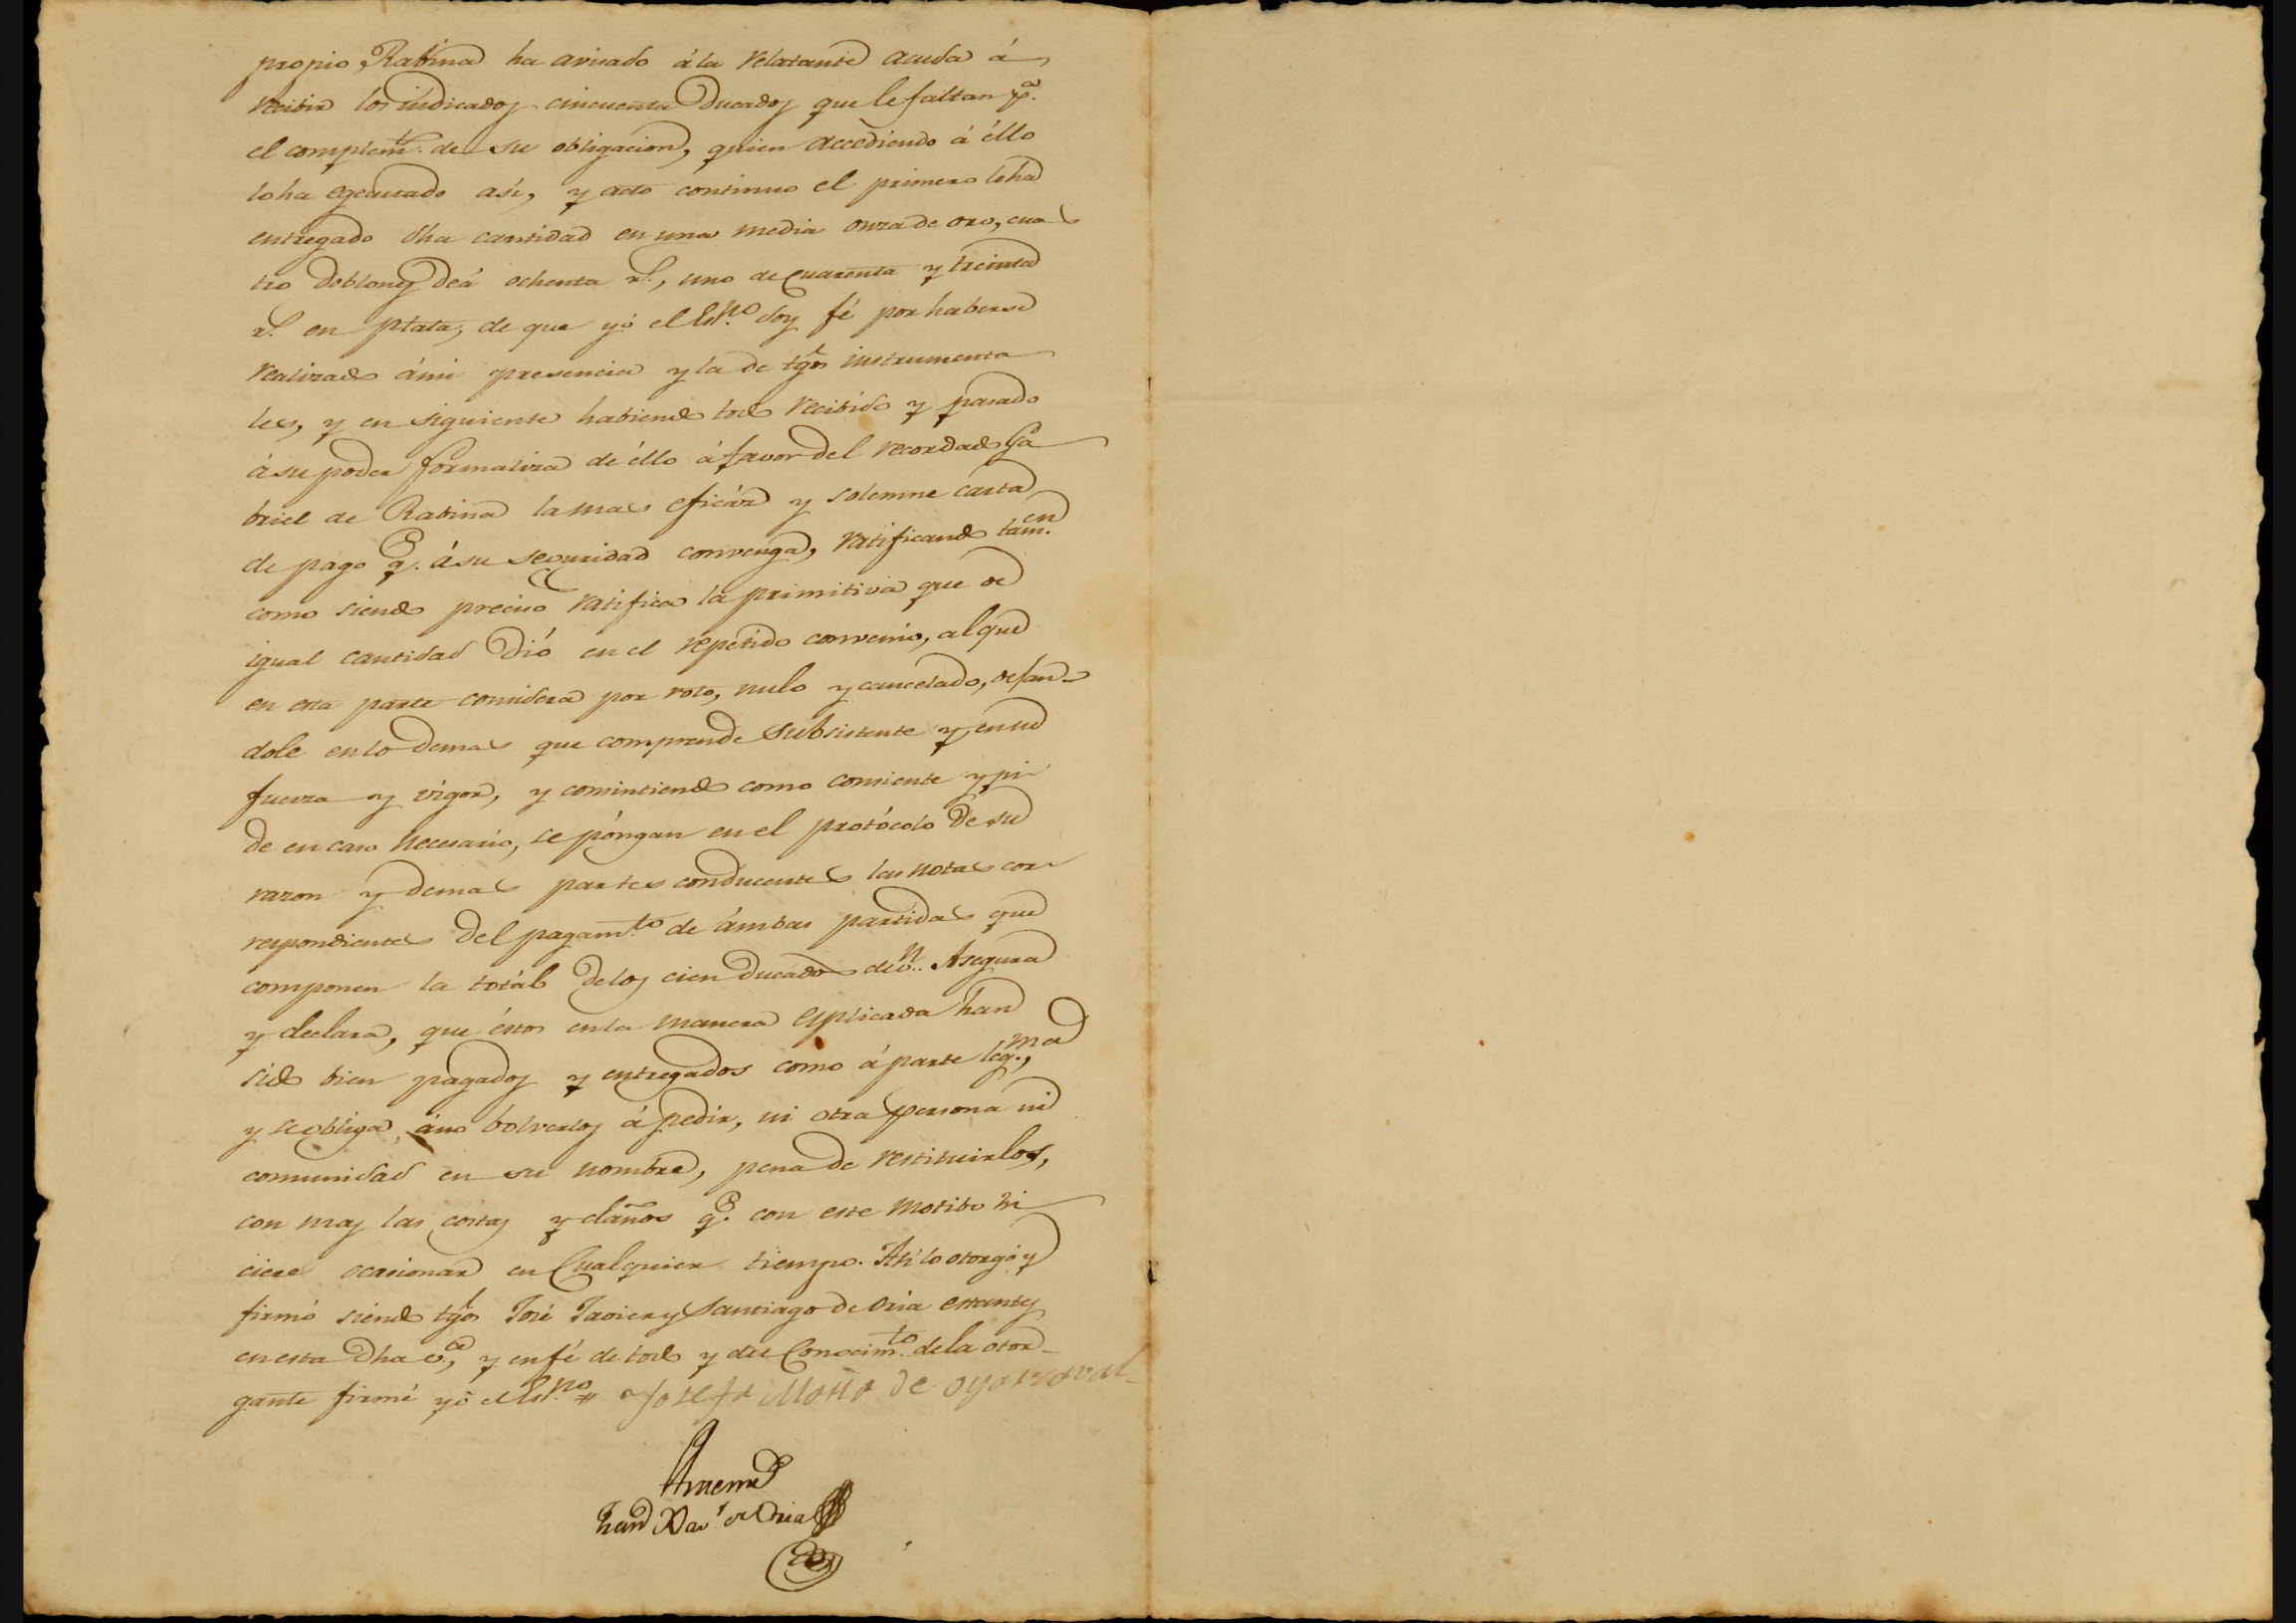 propio Rabina ha avisado á la relatante acuda á
recibir los indicados cincuenta Ducados que le faltan p.ª
el complem.to de su obligacion, quien accediendo á éllo
lo ha egecutado así, y acto continuo el primero le ha
entregado dha cantidad en una media onza de oro, cua
tro Doblones de á ochenta r.s, uno de Cuarenta y treinta
r.s en plata, de que yó el Es.no doy fé por haberse
realizado á mi presencia y la de tgos instrumenta
les, y en siguiente habiendolos recibido y pasado
á su poder formaliza de éllo á favor del recordado Ga
briel de Rabina la mas eficáz y solemne carta
de pago q.e á su seguridad convenga, ratificando tam.en
como siendo preciso ratifica la primitiva que de
igual cantidad Dió en el repetido convenio, al que
en esta parte considera por roto, nulo y cancelado, dejan-
dole en lo demas que comprende subsistente y en su
fuerza y vigor, y consintiendo como consiente y pi
de en caso necesario, se póngan en el protócolo de su
razon y demas partes conducentes las notas cor
respondientes del pagam.to de ámbas partidas que
componen la totál de los cien Ducados de v.n. Asegura
y declara, que éstos en la manera esplicada han
sido bien pagados y entregados como á parte leg.ma,
y se obliga á no bolverlos á pedir, ni otra persona ni
comunidad en su nombre, pena de restituirlos,
con mas las costas y daños q.e con este motibo hi
ciere ocasionar en Cualquier tiempo. Así lo otorgó y
firmó siendo tgos José Javier y Santiago de Oria estantes
en esta Dha v.ª, y en fé de todo y del Conocim.to de la otor-
gante firmé yó el Es.no # Josefa Maria de oyarzaval
Ante mi
Juan Xav.r de Oria